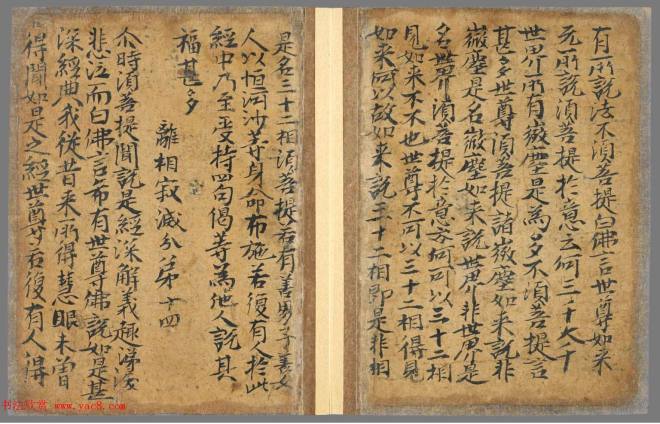 有所說法不須菩提白佛言世尊如來
无所說須菩提於意云何三千大千
世界所有微塵是為多不須菩提言
甚多世尊須菩提諸微塵如來說非
微塵是名微塵如來說世界非世界是
名世界須菩提於意云何可以三十二相
見如來不不也世尊不可以三十二相得見
如來何以故如來說三十二相即是非相
是名三十二相須菩提若有善男子善女
人以恒河沙等身命布施若復有人於此
經中乃至受持四句偈等為他人說其
福甚多
離相寂滅分第十四
尒時須菩提聞說是經深解義趣涕淚
悲泣而白佛言希有世尊佛說如是甚
深經典我從昔來所得慧眼未曾
得聞如是之經世尊若復有人得
书法欣赏 www.yac8.com